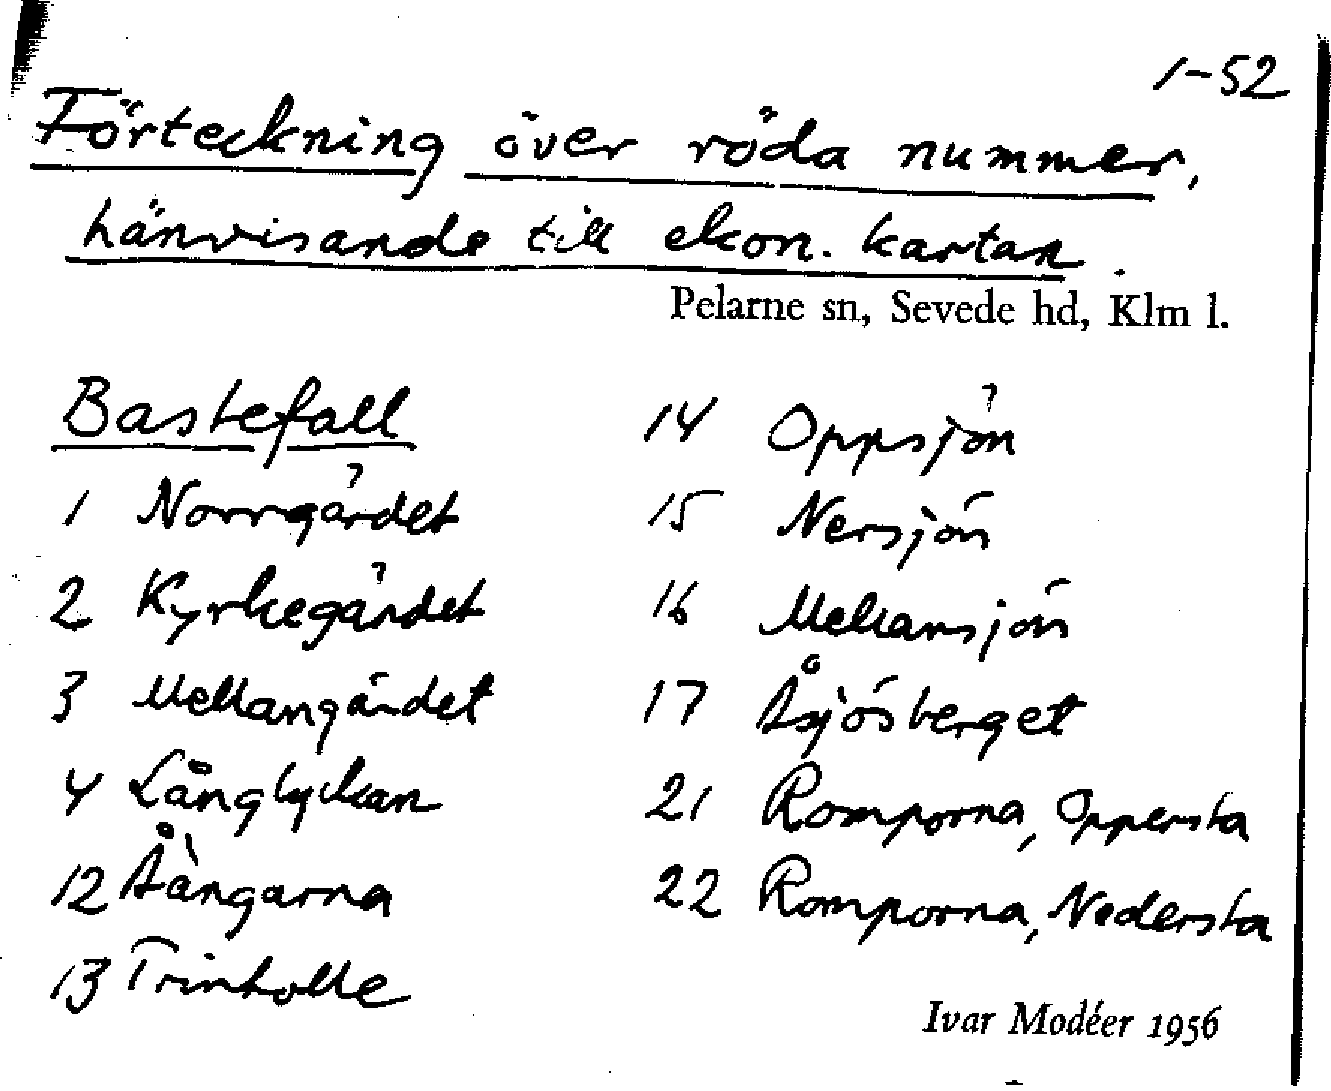 1-52
Förteckning över röda nummer,
hänvisande till ekon. kartan.
Pelarne sn, Sevede hd, Klm l.
Bastefall
1 Norrgärdet
2 Kyrkegärdet
3 Mellangärdet
4 Långlyckan
12 Åängarna
13 Trinkolle
14 Oppsjön
15 Nersjön
16 Mellansjön
17 Åsjösberget
21 Romporna, Oppersta
22 Romporna, Nedersta
Ivar Modéer 1956